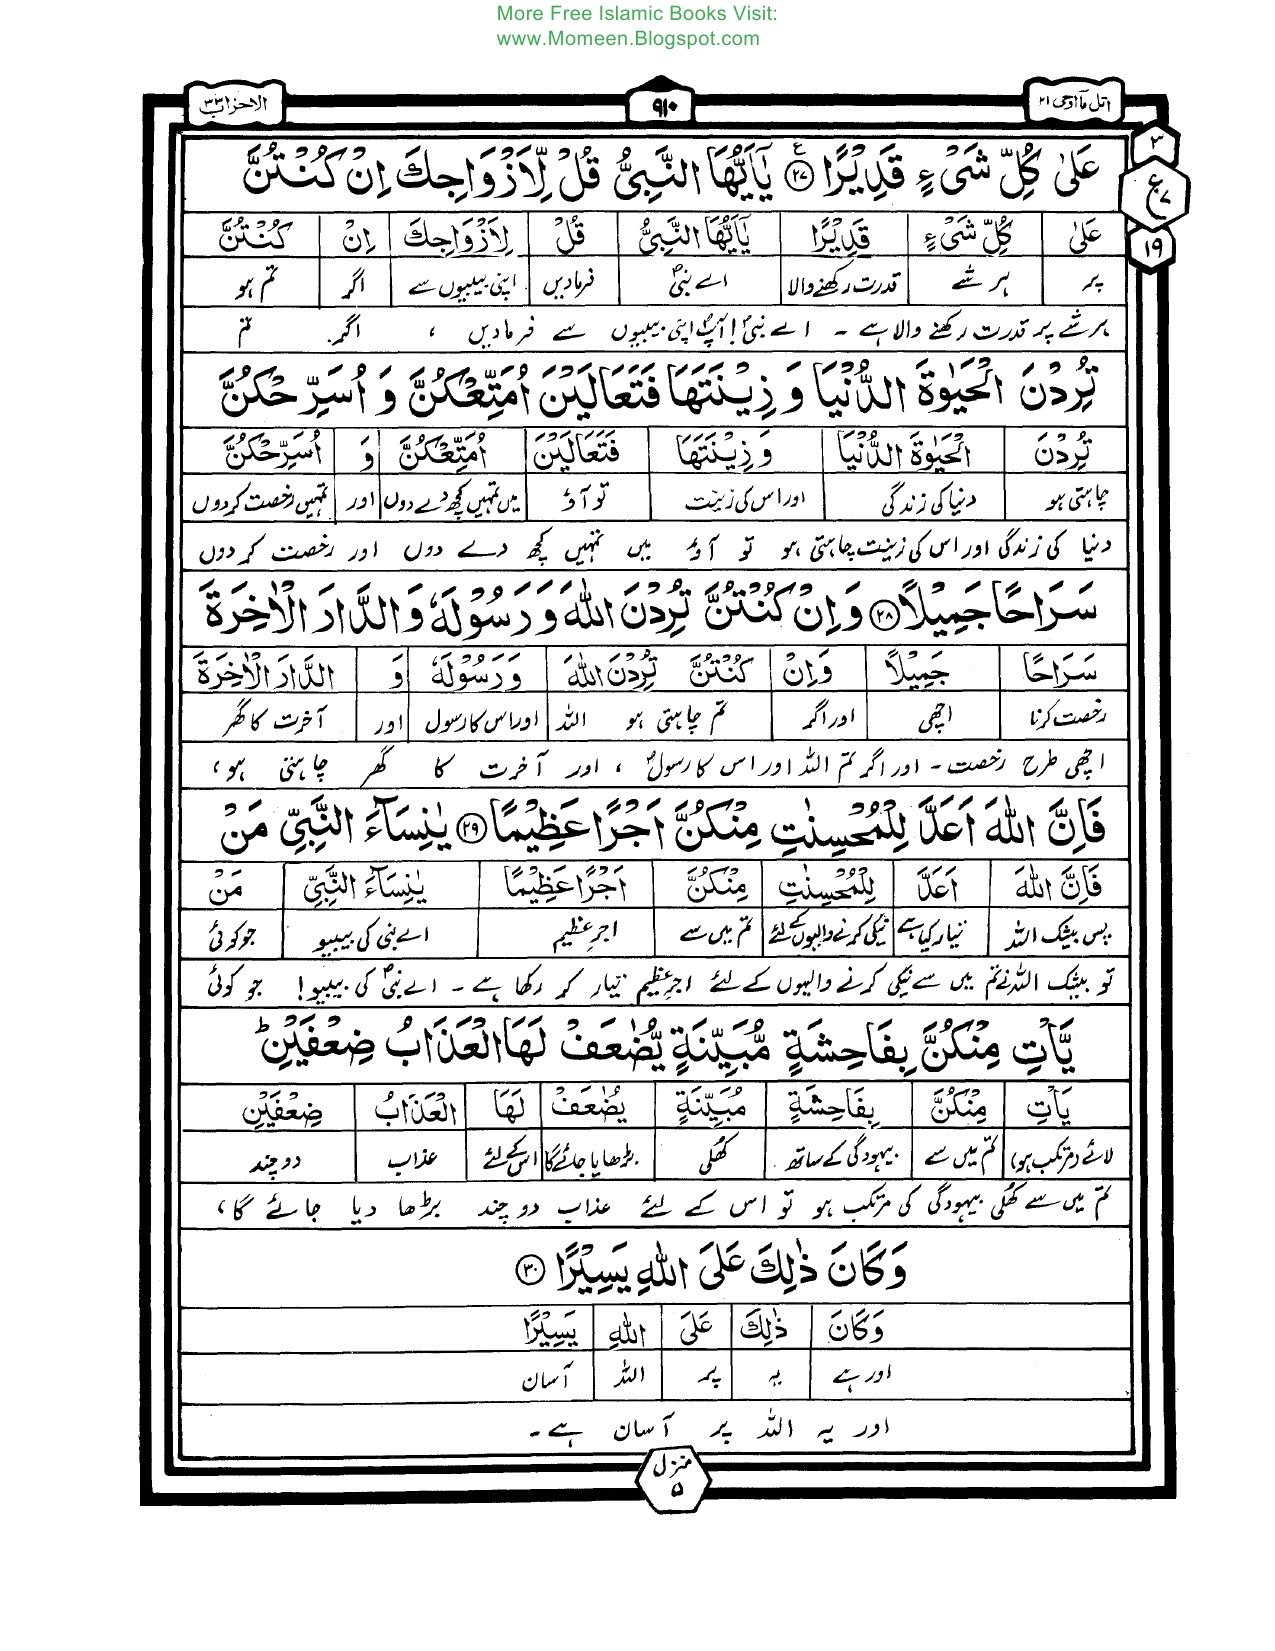 More Free Islamic Books Visit:
www.Momeen.Blogspot.com
اتل مآ اوحی ۲۱ ۹۱۰ الاحزاب ۳۳
۳
ع
۷
۱۹
عَلٰی كُلِّ شَیْءٍ قَدِیْرًا ۲۷ ع یٰۤاَیُّهَا النَّبِیُّ قُلْ لِّاَزْوَاجِكَ اِنْ كُنْتُنَّ
عَلٰی كُلِّ شَیْءٍ قَدِیْرًا یٰۤاَیُّهَا النَّبِیُّ قُلْ لِاَزْوَاجِكَ اِنْ كُنْتُنَّ
پر ہر شے قدرت رکھنے والا اے نبیؐ فرمادیں اپنی بیبیوں سے اگر تم ہو
ہر شے پر قدرت رکھنے والا ہے ۔ اے نبیؐ! آپؐ اپنی بیبیوں سے فرمادیں ، اگر تم
تُرِدْنَ الْحَیٰوةَ الدُّنْیَا وَ زِیْنَتَهَا فَتَعَالَیْنَ اُمَتِّعْكُنَّ وَ اُسَرِّحْكُنَّ
تُرِدْنَ الْحَیٰوةَ الدُّنْیَا وَ زِیْنَتَهَا فَتَعَالَیْنَ اُمَتِّعْكُنَّ وَ اُسَرِّحْكُنَّ
چاہتی ہو دنیا کی زندگی اور اس کی زینت تو آؤ میں تمہیں کچھ دے دوں اور تمہیں رخصت کردوں
دنیا کی زندگی اور اس کی زینت چاہتی ہو تو آؤ میں تمہیں کچھ دے دوں اور رخصت کردوں
سَرَاحًا جَمِیْلًا ۲۸ وَ اِنْ كُنْتُنَّ تُرِدْنَ اللّٰهَ وَ رَسُوْلَهٗ وَ الدَّارَ الْاٰخِرَةَ
سَرَاحًا جَمِیْلًا وَ اِنْ كُنْتُنَّ تُرِدْنَ اللّٰهَ وَ رَسُوْلَهٗ وَ الدَّارَ الْاٰخِرَةَ
رخصت کرنا اچھی اور اگر تم چاہتی ہو اللہ اور اس کا رسول اور آخرت کا گھر
اچھی طرح رخصت ۔ اور اگر تم اللہ اور اس کا رسولؐ ، اور آخرت کا گھر چاہتی ہو ،
فَاِنَّ اللّٰهَ اَعَدَّ لِلْمُحْسِنٰتِ مِنْكُنَّ اَجْرًا عَظِیْمًا ۲۹ یٰنِسَآءَ النَّبِیِّ مَنْ
فَاِنَّ اللّٰهَ اَعَدَّ لِلْمُحْسِنٰتِ مِنْكُنَّ اَجْرًا عَظِیْمًا یٰنِسَآءَ النَّبِیِّ مَنْ
پس بیشک اللہ تیار کیا ہے نیکی کرنے والیوں کے لئے تم میں سے اجرِ عظیم اے نبی کی بیبیو جو کوئی
تو بیشک اللہ نے تم میں سے نیکی کرنے والیوں کے لئے اجرِ عظیم تیار کر رکھا ہے ۔ اے نبیؐ کی بیبیو! جو کوئی
یَّاْتِ مِنْكُنَّ بِفَاحِشَةٍ مُّبَیِّنَةٍ یُّضٰعَفْ لَهَا الْعَذَابُ ضِعْفَیْنِ ؕ
یَاْتِ مِنْكُنَّ بِفَاحِشَةٍ مُبَیِّنَةٍ یُضٰعَفْ لَهَا الْعَذَابُ ضِعْفَیْنِ
لائے (مرتکب ہو) تم میں سے بیہودگی کے ساتھ کھُلی بڑھایا جائے گا اس کے لئے عذاب دو چند
تم میں سے کھُلی بیہودگی کی مرتکب ہو تو اس کے لئے عذاب دو چند بڑھا دیا جائے گا ،
وَ كَانَ ذٰلِكَ عَلَی اللّٰهِ یَسِیْرًا ۳۰
وَ كَانَ ذٰلِكَ عَلَی اللّٰهِ یَسِیْرًا
اور ہے یہ پر اللہ آسان
اور یہ اللہ پر آسان ہے ۔
منزل ۵